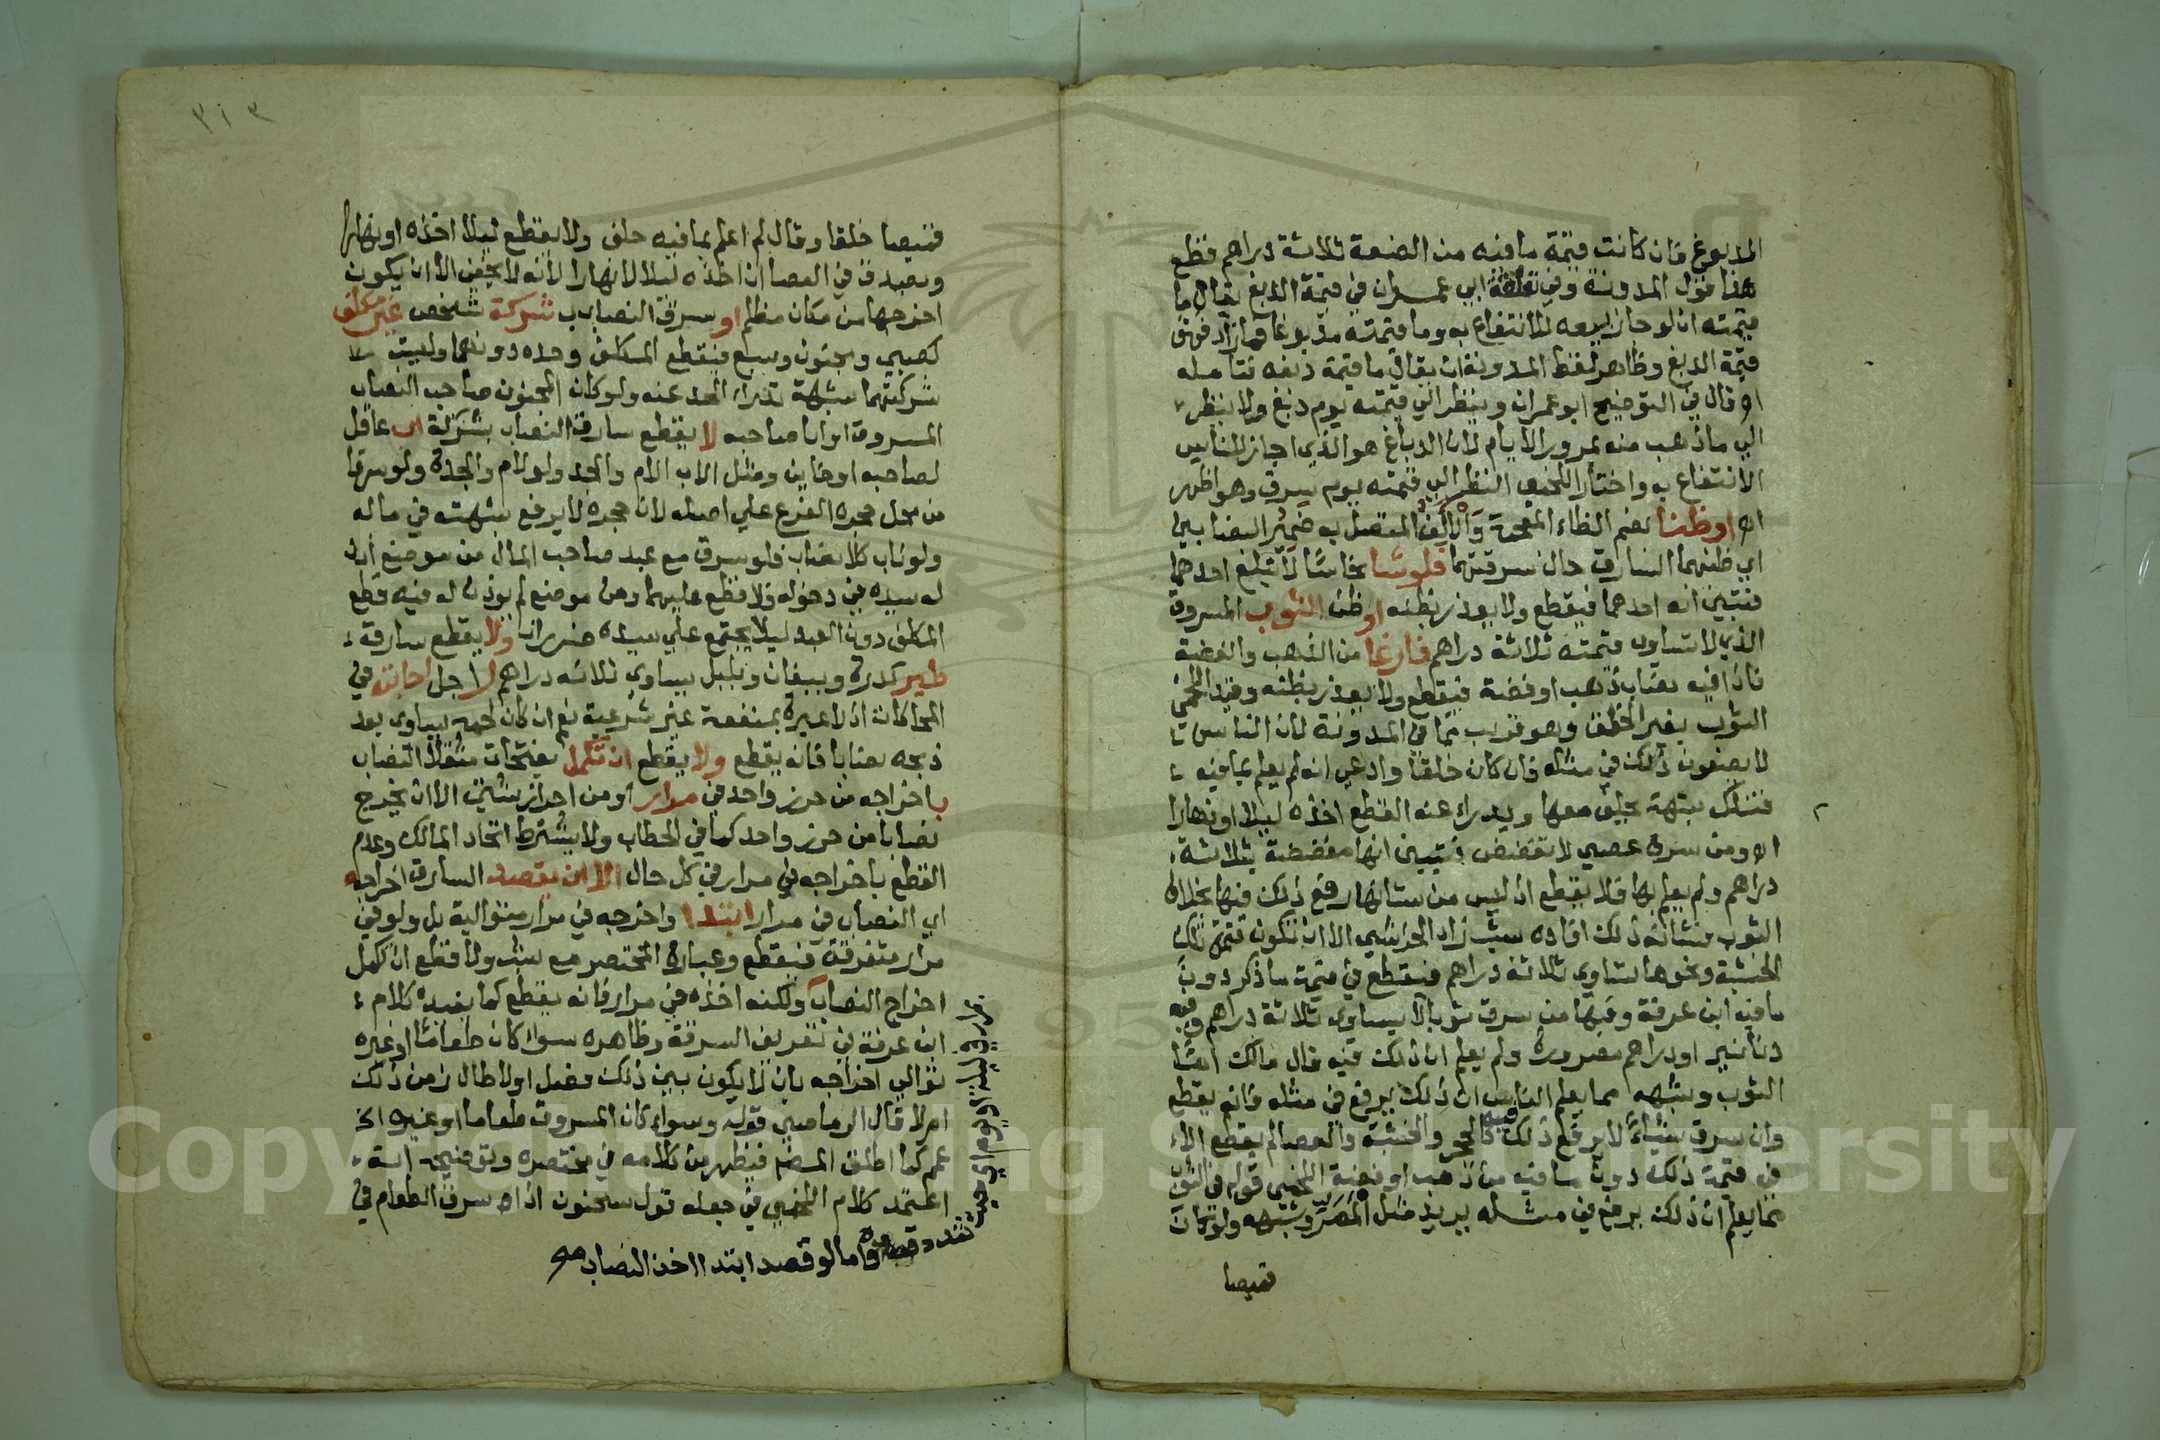 المدبوغ فان كانت قيمة ما فيه من الصنعة ثلاثة دراهم قطع
هذا قول المدونة وفي تعلقة ابي عمران في قيمة الدبغ يقال ما
قيمته ان لو جاز بيعه للانتفاع به وما قيمته مدبوغا فما زاد فهو
قيمة الدبغ وظاهر لفظ المدونة ان يقال ما قيمة دبغه فتامله
اه وقال في التوضيح ابو عمران وينظر الي قيمته يوم دبغ ولا ينظر
الي ما ذهب منه بمرور الايام لان الدباغ هو الذي اجاز للناس
الانتفاع به واختار اللخمي النظر الي قيمته يوم سرق وهو اظهر
اه او ظنا بضم الظاء المعجمة والالف المتصل به ضمير النصابين
اي ظنهما السارق حال سرقتهما فلوسا نحاسا لا تبلغ احدهما
فتبين انه احدهما فيقطع ولا يعذر بظنه او ظن الثوب المسروق
الذي لا تساوي قيمته ثلاثة دراهم فارغا من الذهب والفضة
فاذا فيه نصاب ذهب او فضة فيقطع ولا يعذر بظنه وقيد اللخمي
الثوب بغير الخلق وهو قريب مما في المدونة لان الناس
لا يضعون ذلك في مثله فان كان خلقا وادعي انه لم يعلم بما فيه
فتلك شبهة يحلف معها ويدرا عنه القطع اخذه ليلا او نهارا
اه ومن سرق عصي لا تفضض فتبين انها مفضضة بثلاثة
دراهم ولم يعلم بها فلا يقطع اذ ليس من شانها رفع ذلك فيها بخلاف
الثوب فشانه ذلك افاده شب زاد الخراشي الا ان تكون قيمة تلك
الخشبة ونحوها تساوي ثلاثة دراهم فيقطع في قيمة ما ذكر دون
ما فيه ابن عرفة وفيها من سرق ثوبا لا يساوي ثلاثة دراهم وفيه
دنانير او دراهم مصرورة ولم يعلم ان ذلك فيه قال مالك اما
الثوب وشبهه مما يعلم الناس ان ذلك يرفع في مثله فانه يقطع
وان سرق شيئا لا يرفع ذلك فيه كالحجر والخشبة والعصا لم يقطع الا
في قيمة ذلك دون ما فيه من ذهب او فضة اللخمي قوله في الثوب
مما يعلم ان ذلك يرفع في مثله يريد مثل المصر وشبهه ولو كان
قميصا
٣١٣
قميصا خلقا وقال لم اعلم بما فيه حلف ولا يقطع ليلا اخذه او نهارا
ويصدق في العصا ان اخذه ليلا لا نهارا لانه لا يخفي الا ان يكون
اخرجها من مكان مظلم او سرق النصاب ب شركة شخص غير مكلف
كصبي ومجنون وسبع فيقطع المكلف وحده دونهما وليست
شركتهما شبهة تدرا الحد عنه ولو كان المجنون صاحب النصاب
المسروق او اباصاحبه لا يقطع سارق النصاب بشركة اب عاقل
لصاحبه او خاين ومثل الاب الام والجد ولو لام والجدة ولو سرقا
من محل حجره الفرع علي اصله لان حجره لا يرفع شبهته في ماله
ولو ناب كلا نصاب فلو سرق مع عبد صاحب المال من موضع اذن
له سيده في دخوله فلا قطع عليهما ومن موضع لم يوذن له فيه قطع
المكلف دون العبد ليلا يجتمع علي سيده ضرران ولا يقطع سارق
طير كدرة وببغان وبلبل يساوي ثلاثة دراهم لاجل اجابته في
المحاكات اذ لا عبرة بمنفعة غير شرعية نعم ان كان لحمه يساوي بعد
ذبحه نصابا فانه يقطع ولا يقطع ان تكمل بفتحات مثقلا النصاب
ب اخراجه من حرز واحد في مرار او من احراز شتي الا ان يخرج
نصابا من حرز واحد كما في الحطاب ولا يشترط اتحاد المالك وعدم
القطع باخراجه في مرار في كل حال الا ان يقصد السارق اخراجه
اي النصاب في مرار ابتدا واخرجه في مرار متوالية بل ولو في
مرار متفرقة فيقطع وعبارة المختصر مع شب ولا قطع ان كمل
اخراج النصاب ولكنه اخذه في مرار فانه يقطع كما يفيده كلام
ابن عرفة في تعريف السرقة وظاهره سواء كان طعاما او غيره
توالي اخراجه بان لا يكون بين ذلك فصل اولا طال زمن ذلك
ام لا قال الرماصي قوله وسواء كان المسروق طعاما او غيره الخ
عمم كما اطلق المصنف فيظهر من كلامه في مختصره وتوضيحه انه
اعتمد كلام اللخمي في جعله قول سحنون اذا سرق الطعام في
مرار في ليلة او يوم اي حيث
تعدد قصده واما لو قصد ابتدا اخذ النصاب صح
Copyright © King Saud University